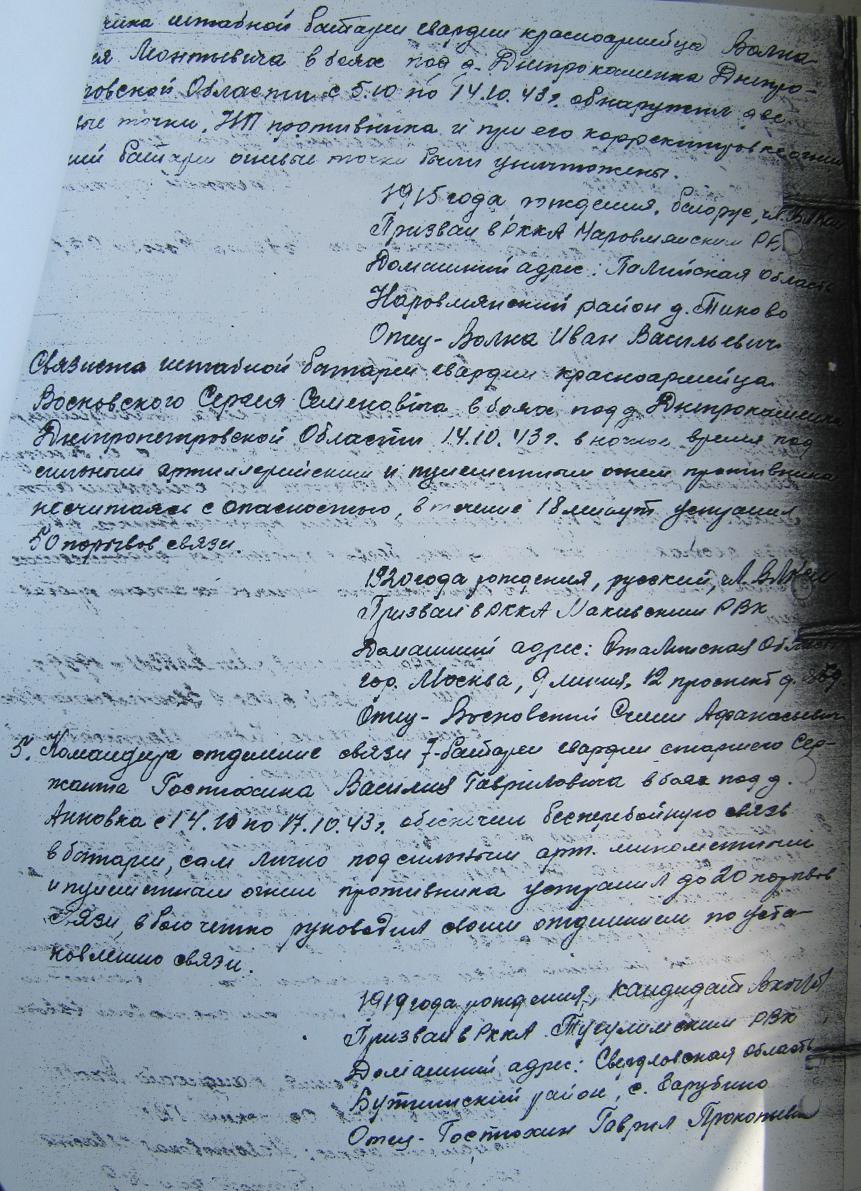 чика штабной батареи гвардии красноармейца Волка
Леонтьевича в боях под д. Днепрокаменка Днепро-
Области с 5.10 по 14.10.43г. обнаружил две
точки, НП противника и при его корректировке огнем
батареи огневые точки были уничтожены.
1915 года рождения, белорус, чл. ВЛКСМ
Призван в РККА Наровлянским РВ
Домашний адрес: область
Наровлянский район д. Тиково
Отец - Волка Иван Васильевич
Связиста штабной батареи гвардии красноармейца
Восковского Сергея Семеновича в боях под д. Днепрокаменка
Днепропетровской Области 14.10.43г. в ночное время под
сильным артиллерийским и пулеметным огнем противника
несчитаясь с опасностью, в течение 18 минут устранил
50 порывов связи.
1920 года рождения, русский, чл. ВЛКСМ
Призван в РККА РВК
Домашний адрес: Сталинская Область
гор. Москва, 9 линия, 12 проспект д.
Отец - Восковский Семен Афанасьевич
5. Командира отделение связи 7-батареи гвардии старшего сер-
жанта Гостюхина Василия Гавриловича в боях под д.
Анновка с 14.10 по 17.10.43г. обеспечил бесперебойную связь
в батареи, сам лично под сильным арт. минометным
и пулеметным огнем противника устранил до 20 порывов
связи, в бою четко руководил своим отделением по уста-
новлению связи.
1919 года рождения, кандидат ВКП(б)
Призван в РККА Тугулимским РВК
Домашний адрес: Свердловская область
район, с. Зарубино
Отец - Гостюхин Гаврил Прокопьевич